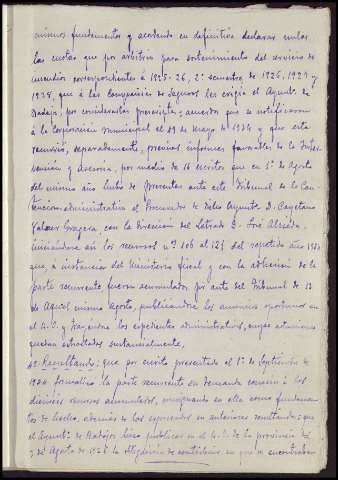 mismos fundamentos y acordando en definitiva declarar nulas
las cuotas que por arbitrio para sostenimiento del servicio de
incendios correspondientes á 1925-26, 2º semestre de 1926, 1927 y
1928, que á las Compañías de Seguros les exigía el Ayuntº de
Badajoz, por considerarlas; acuerdos que se notificaron
á la Corporación municipal el 29 de Mayo de 1934 y que esta
recurrió, separadamente, previos informes favorables de la Inter-
vención y Asesoría, por medio de 16 escritos que en 1º de Agosto
del mismo año hubo de presentar ante este Tribunal de lo Con-
tencioso-administrativo el Procurador de dicho Ayuntº D. Cayetano
Gragera, con la Dirección del Letrado D. José
iniciándose así los recursos nºs 106 al 121 del repetido año 1934
que, á instancia del Ministerio fiscal y con la adhesión de la
parte recurrente fueron acumulados por auto del Tribunal de 13
de aquel mismo agosto, publicándose los anuncios oportunos en
el B. O. y trayendo los expedientes administrativos, cuyas actuaciones
quedan extractadas sustancialmente,
Resultando: que por escrito presentado el 1º de Septiembre de
1934 formalizó la parte recurrente su demanda común á los
dieciséis recursos acumulados, consignando en ella como fundamen-
tos de hecho, además de los expresados en anteriores resultandos: que
el Ayuntº de Badajoz hizo publicar en el B. O. de la provincia del
7 de Agosto de 1926 la obligación de contribuir en que se encontraban